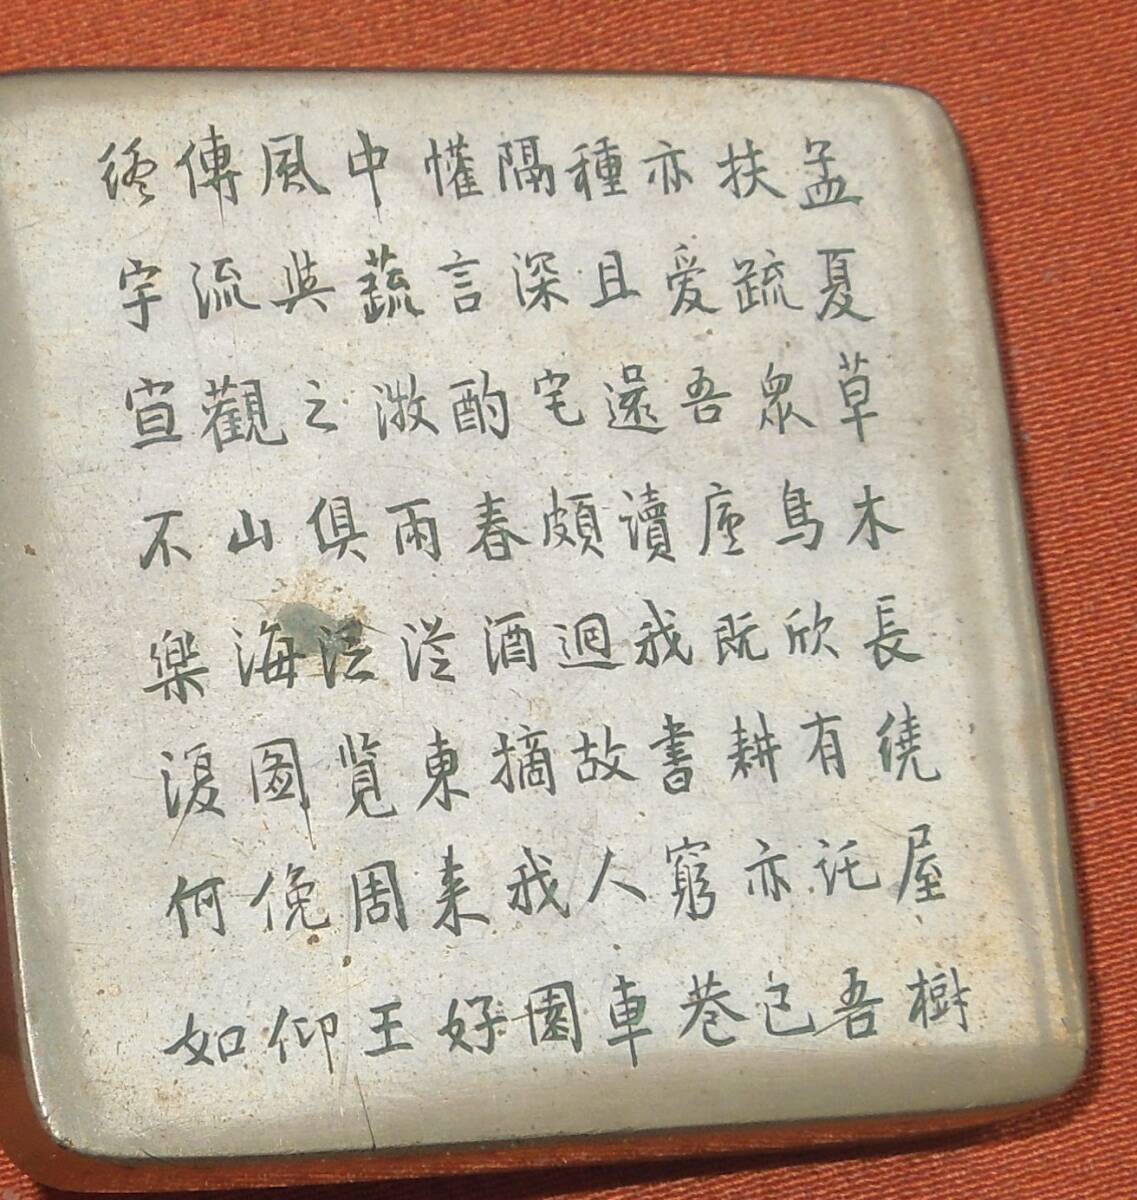 孟夏草木長繞屋樹
扶䟽眾鳥欣有託吾
亦爱吾廬既耕亦已
種且還讀我書窮巷
隔深宅頗迴故人車
懽言酌春酒摘我園
中蔬微雨從東来好
風與之俱泛覽周王
傳流觀山海圖俛仰
終宇宣不樂復何如